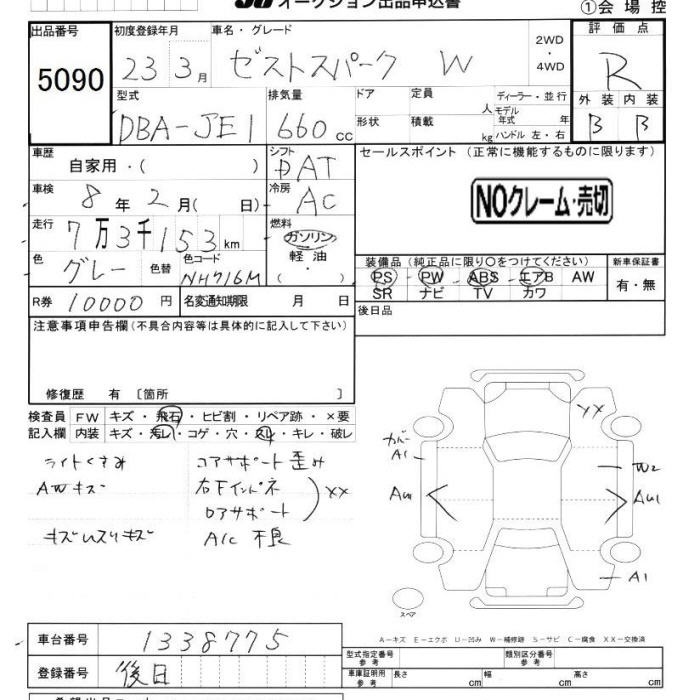 オークション出品申込書
①会場控
出品番号
5090
初度登録年月
23 3月
車名・グレード
ゼストスパーク W
2WD
・
4WD
評価点
R
型式
DBA-JE1
排気量
660cc
ドア
形状
定員
人
積載
kg
ディーラー・並行
モデル年式 年
ハンドル 左・右
外装 内装
B B
車歴
自家用・( )
シフト
DAT
セールスポイント (正常に機能するものに限ります)
NOクレーム・売切
車検
8年2月( 日)
冷房
AC
走行
7万3千153km
燃料
ガソリン
軽油
( )
色
グレー
色替
色コード
NH716M
装備品(純正品に限り○をつけてください)
PS・PW・ABS・エアB AW
SR ナビ TV カワ
新車保証書
有・無
R券 10000円
名変通知期限 月 日
後日品
注意事項申告欄(不具合内容等は具体的に記入して下さい)
修復歴 有〔箇所 〕
検査員
記入欄
FW キズ・飛石・ヒビ割・リペア跡・×要
内装 キズ・汚レ・コゲ・穴・スレ・キレ・破レ
ライトくすみ
コアサポート歪み
AWキズ
右Fインパネ
ロアサポート
XX
キズUスリキズ
A/C 不良
XX
カバー
A1
W2
AU1
A1
スペア
A-キズ E-エクボ U-凹み W-補修跡 S-サビ C-腐食 XX-交換済
車台番号
1338775
登録番号
後日
型式指定番号
参考
類別区分番号
参考
車庫証明用
参考
長さ cm
幅 cm
高さ cm